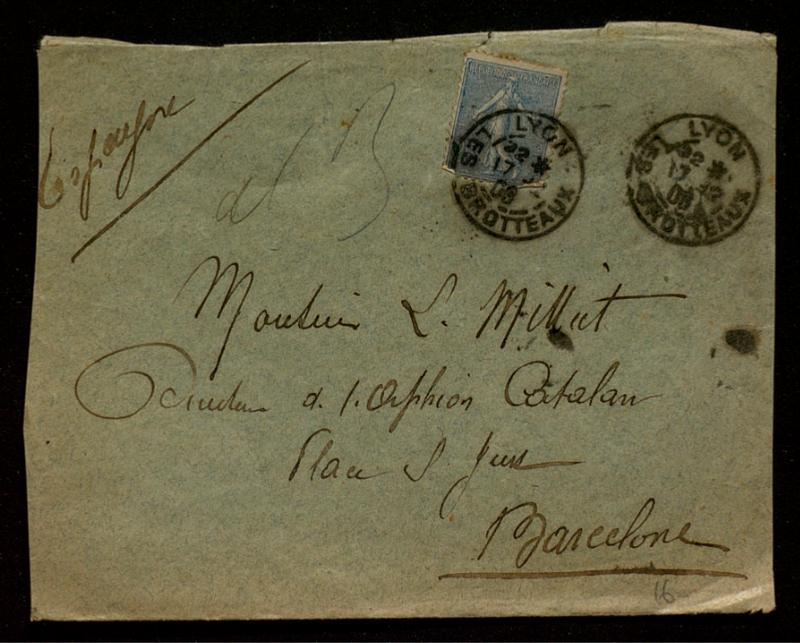 Espagne
RÉPUBLIQUE FRANÇAISE
LYON
22 *
17
08
LES BROTTEAUX
LYON
22 *
17 12
08
LES BROTTEAUX
Monsieur L. Millet
Directeur d. l. Orphéon Catalan
Place S Just
Barcelone
16